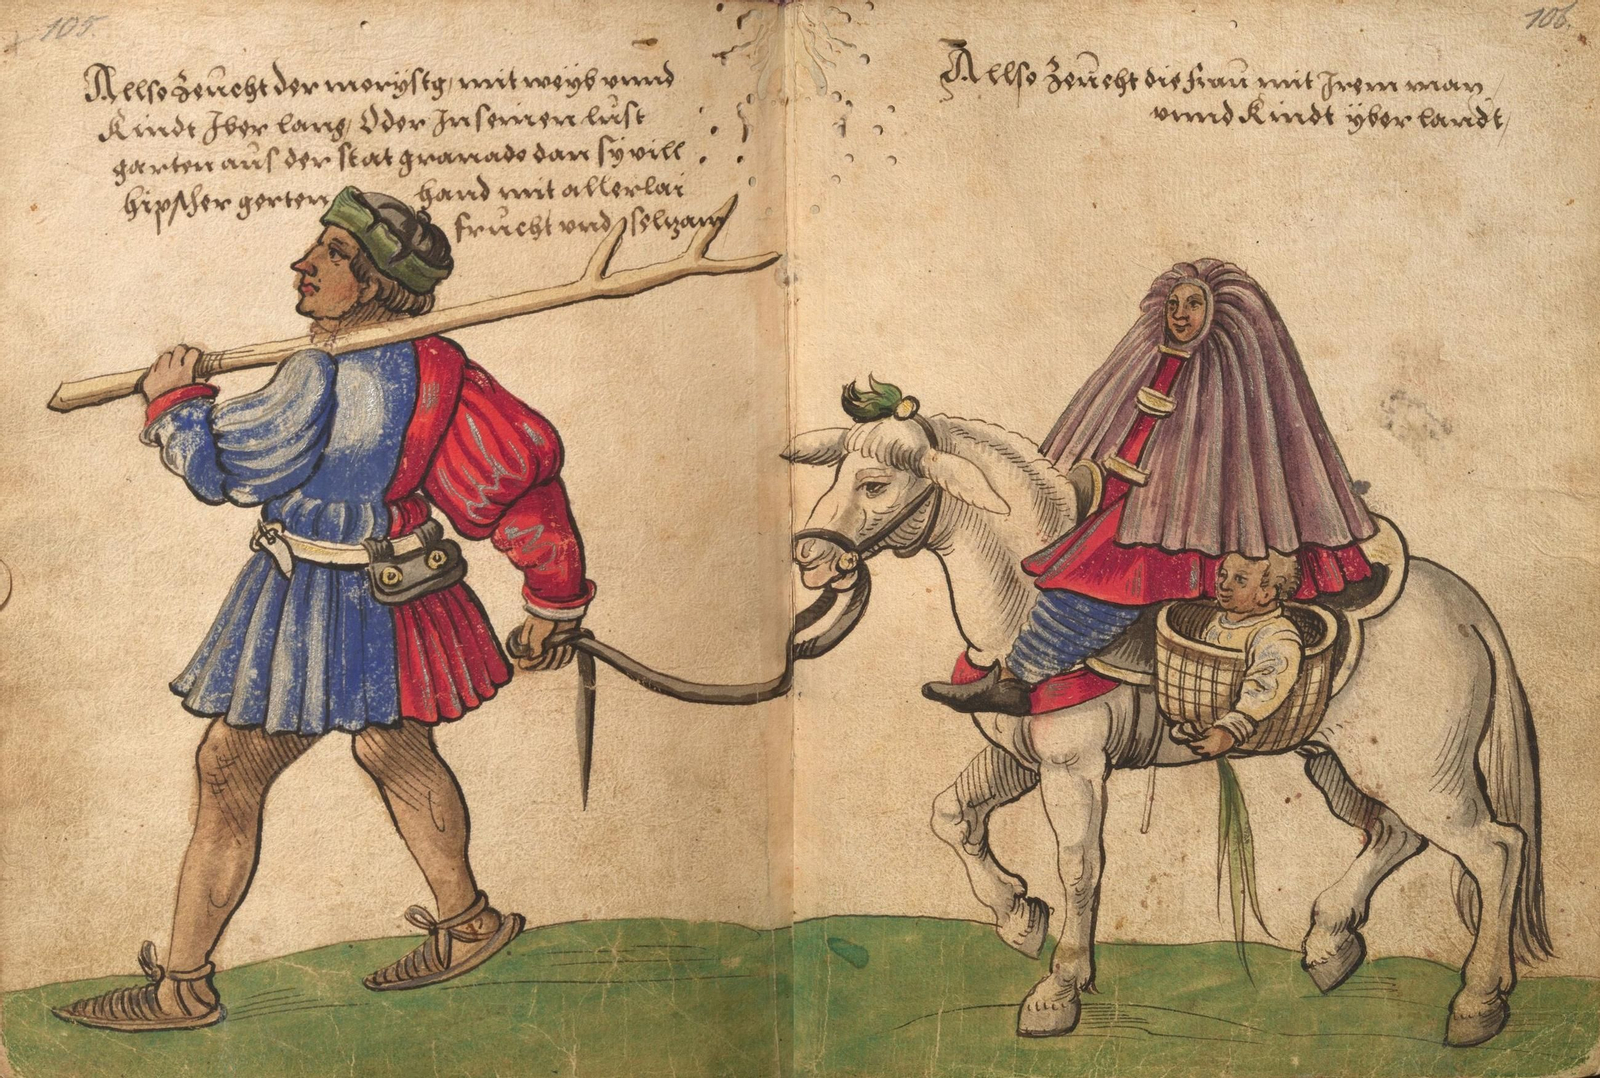 105.
Allso Zeücht der morystg, mit weyb vnnd
Kindt Iber lang, Oder In seinen lust
garten aus der stat granado dan sy vill
hipscher gerten hand mit allerlai
frücht vnd selzam
106.
Allso Zeücht die fraü mit Irem man,
vnnd Kindt yber landt,